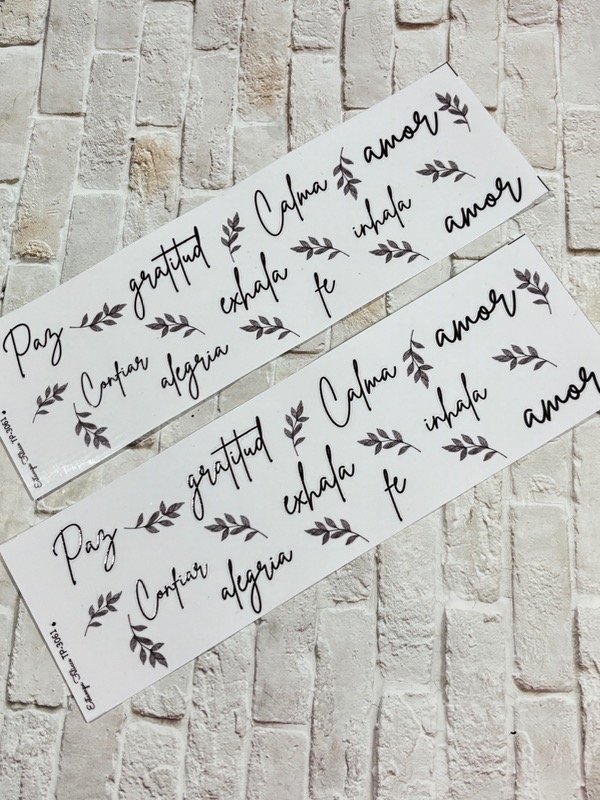 Paz gratitud Calma amor
Confiar exhala inhala amor
alegria fe
TP-3061
Paz gratitud Calma amor
Confiar exhala inhala amor
alegria fe
TP-3061